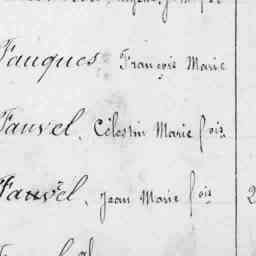 Fauques François Marie
Fauvel, Célestin Marie fois
Fauvel, Jean Marie fois 2